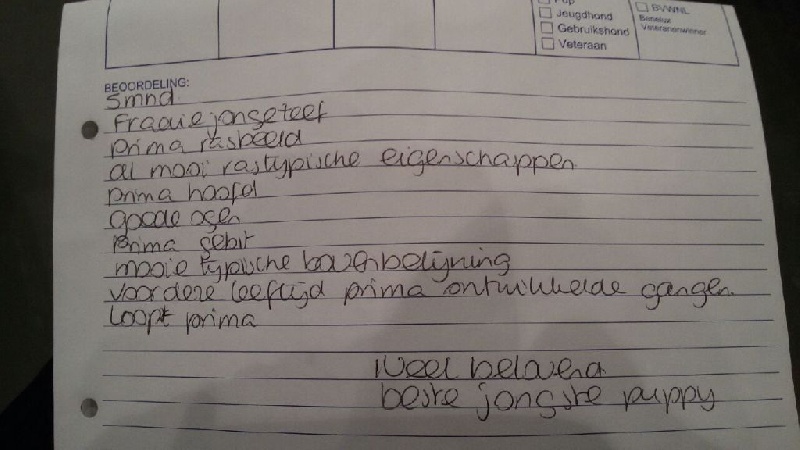 Pup
Jeugdhond
Gebruikshond
Veteraan
BVWNL
Benelux
Veteranenwinner
BEOORDELING:
5mnd.
Fraaie jonge teef
prima rasbeeld
al mooi rastypische eigenschappen
prima hoofd
goede ogen
prima gebit
mooie typische bovenbelijning
voor dere leeftijd prima ontwikkelde gangen
loopt prima
1 Veel belovend
beste jongste puppy